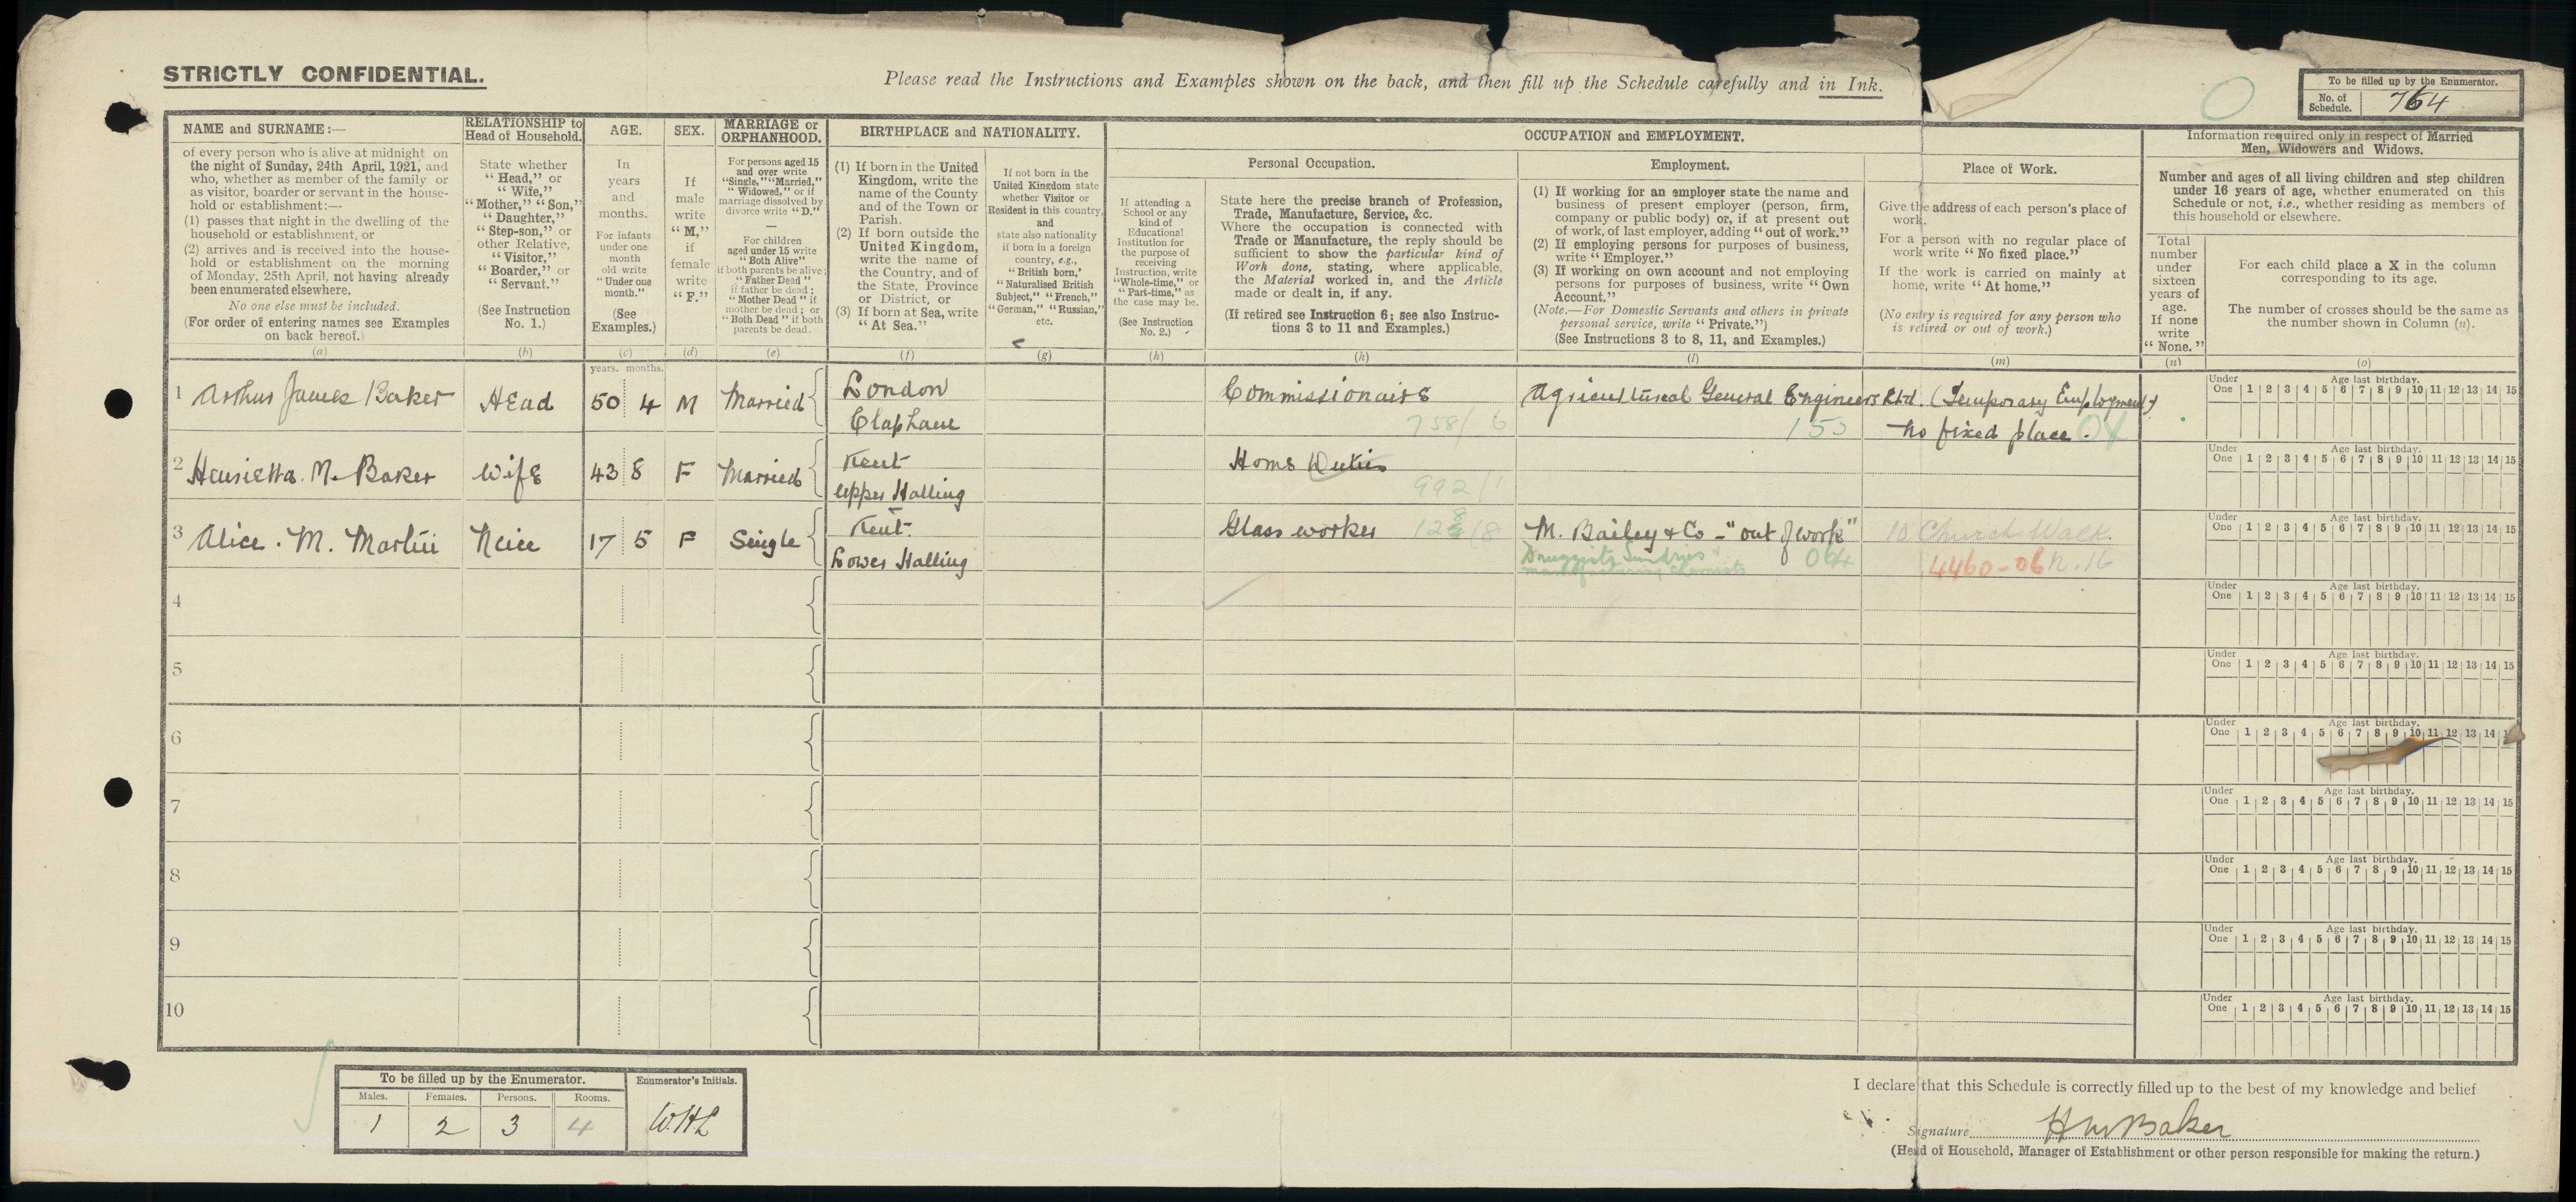 STRICTLY CONFIDENTIAL.
Please read the Instructions and Examples shown on the back, and then fill up the Schedule carefully and in Ink.
To be filled up by the Enumerator.
No. of Schedule. 764
NAME and SURNAME:—
of every person who is alive at midnight on
the night of Sunday, 24th April, 1921, and
who, whether as member of the family or
as visitor, boarder or servant in the house-
hold or establishment:—
(1) passes that night in the dwelling of the
household or establishment, or
(2) arrives and is received into the house-
hold or establishment on the morning
of Monday, 25th April, not having already
been enumerated elsewhere.
No one else must be included.
(For order of entering names see Examples
on back hereof.)
(a)
RELATIONSHIP to
Head of Household.
State whether
"Head," or
"Wife,"
"Mother," "Son,"
"Daughter,"
"Step-son," or
other Relative,
"Visitor,"
"Boarder," or
"Servant."
(See Instruction
No. 1.)
(b)
AGE.
In
years
and
months.
For infants
under one
month
old write
"Under one
month."
(See
Examples.)
(c)
SEX.
If
male
write
"M,"
if
female
write
"F."
(d)
MARRIAGE or
ORPHANHOOD.
For persons aged 15
and over write
"Single," "Married,"
"Widowed," or if
marriage dissolved by
divorce write "D."
—
For children
aged under 15 write
"Both Alive"
if both parents be alive;
"Father Dead"
if father be dead;
"Mother Dead" if
mother be dead; or
"Both Dead" if both
parents be dead.
(e)
BIRTHPLACE and NATIONALITY.
(1) If born in the United
Kingdom, write the
name of the County
and of the Town or
Parish.
(2) If born outside the
United Kingdom,
write the name of
the Country, and of
the State, Province
or District, or
(3) If born at Sea, write
"At Sea."
(f)
If not born in the
United Kingdom state
whether Visitor or
Resident in this country,
and
state also nationality
if born in a foreign
country, e.g.,
"British born,'
"Naturalised British
Subject," "French,"
"German," "Russian,"
etc.
(g)
OCCUPATION and EMPLOYMENT.
If attending a
School or any
kind of
Educational
Institution for
the purpose of
receiving
Instruction, write
"Whole-time," or
"Part-time," as
the case may be.
(See Instruction
No. 2.)
(h)
Personal Occupation.
State here the precise branch of Profession,
Trade, Manufacture, Service, &c.
Where the occupation is connected with
Trade or Manufacture, the reply should be
sufficient to show the particular kind of
Work done, stating, where applicable,
the Material worked in, and the Article
made or dealt in, if any.
(If retired see Instruction 6; see also Instruc-
tions 3 to 11 and Examples.)
(k)
Employment.
(1) If working for an employer state the name and
business of present employer (person, firm,
company or public body) or, if at present out
of work, of last employer, adding "out of work."
(2) If employing persons for purposes of business,
write "Employer."
(3) If working on own account and not employing
persons for purposes of business, write "Own
Account."
(Note.—For Domestic Servants and others in private
personal service, write "Private.")
(See Instructions 3 to 8, 11, and Examples.)
(l)
Place of Work.
Give the address of each person's place of
work.
For a person with no regular place of
work write "No fixed place."
If the work is carried on mainly at
home, write "At home."
(No entry is required for any person who
is retired or out of work.)
(m)
Information required only in respect of Married
Men, Widowers and Widows.
Number and ages of all living children and step children
under 16 years of age, whether enumerated on this
Schedule or not, i.e., whether residing as members of
this household or elsewhere.
Total
number
under
sixteen
years of
age.
If none
write
"None."
(n)
For each child place a X in the column
corresponding to its age.
The number of crosses should be the same as
the number shown in Column (n).
(o)
years. months.
1 Arthur James Baker Head 50 4 M Married London Commissionaire Agricultural General Engineers Ltd. (Temporary Employment)
Clapham 758/6 153 No fixed place. 04
Under One 1 2 3 4 5 6 7 8 9 10 11 12 13 14 15
Age last birthday.
2 Henrietta. M. Baker Wife 43 8 F Married Kent Home Duties
Upper Halling 992/1
Under One 1 2 3 4 5 6 7 8 9 10 11 12 13 14 15
Age last birthday.
3 Alice. M. Martin Neice 17 5 F Single Kent. Glass worker M. Bailey & Co - "out of work" 10 Church Walk.
Lower Halling Druggists Sundries & manufacturing chemists 064 4460-06 N.16
Under One 1 2 3 4 5 6 7 8 9 10 11 12 13 14 15
Age last birthday.
4
Under One 1 2 3 4 5 6 7 8 9 10 11 12 13 14 15
Age last birthday.
5
Under One 1 2 3 4 5 6 7 8 9 10 11 12 13 14 15
Age last birthday.
6
Under One 1 2 3 4 5 6 7 8 9 10 11 12 13 14
Age last birthday.
7
Under One 1 2 3 4 5 6 7 8 9 10 11 12 13 14 15
Age last birthday.
8
Under One 1 2 3 4 5 6 7 8 9 10 11 12 13 14 15
Age last birthday.
9
Under One 1 2 3 4 5 6 7 8 9 10 11 12 13 14 15
Age last birthday.
10
Under One 1 2 3 4 5 6 7 8 9 10 11 12 13 14 15
Age last birthday.
To be filled up by the Enumerator.
Males. Females. Persons. Rooms.
1 2 3 4
Enumerator's Initials.
W.H.L
I declare that this Schedule is correctly filled up to the best of my knowledge and belief
Signature H M Baker
(Head of Household, Manager of Establishment or other person responsible for making the return.)